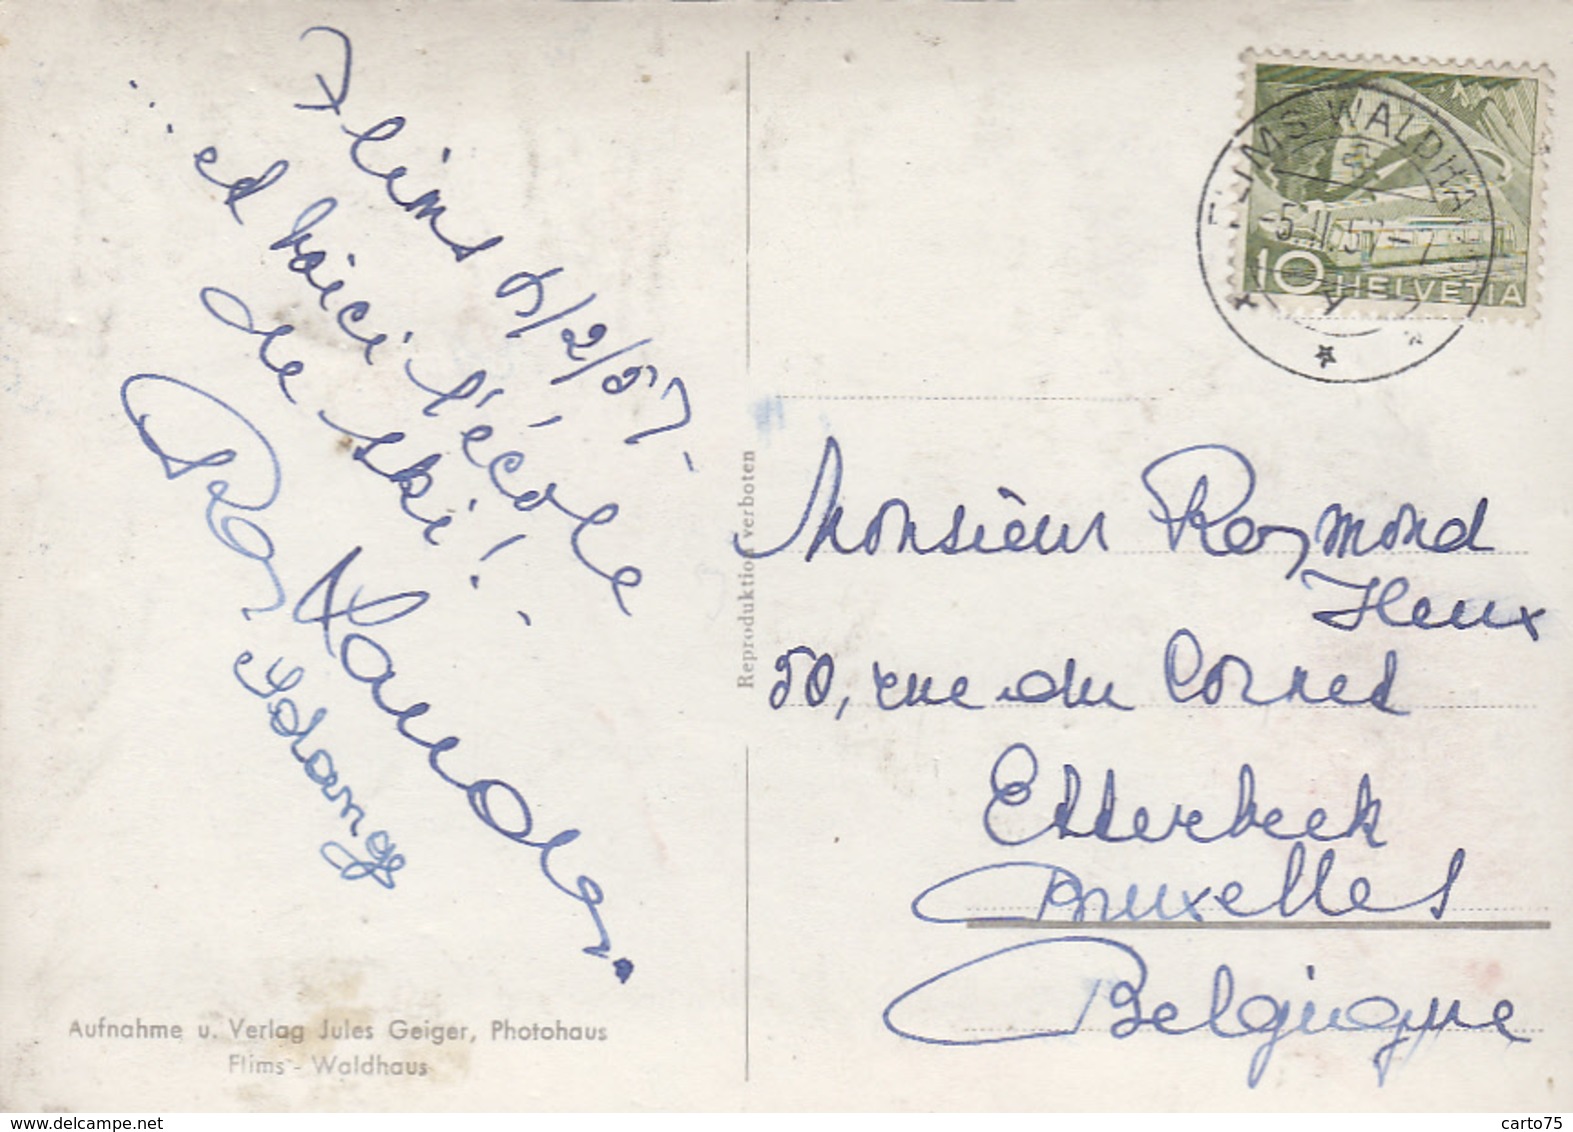 Flims 5/2/57.
... et voici l'école
de ski!.
FLIMS WALDHAUS
-5.II.57
10 HELVETIA
Reproduktion verboten
Monsieur Raymond
Heux
50, rue du Cornet
Etterbeek
Bruxelles
Belgique
Aufnahme u. Verlag Jules Geiger, Photohaus
Flims - Waldhaus
www.delcampe.net
carto75